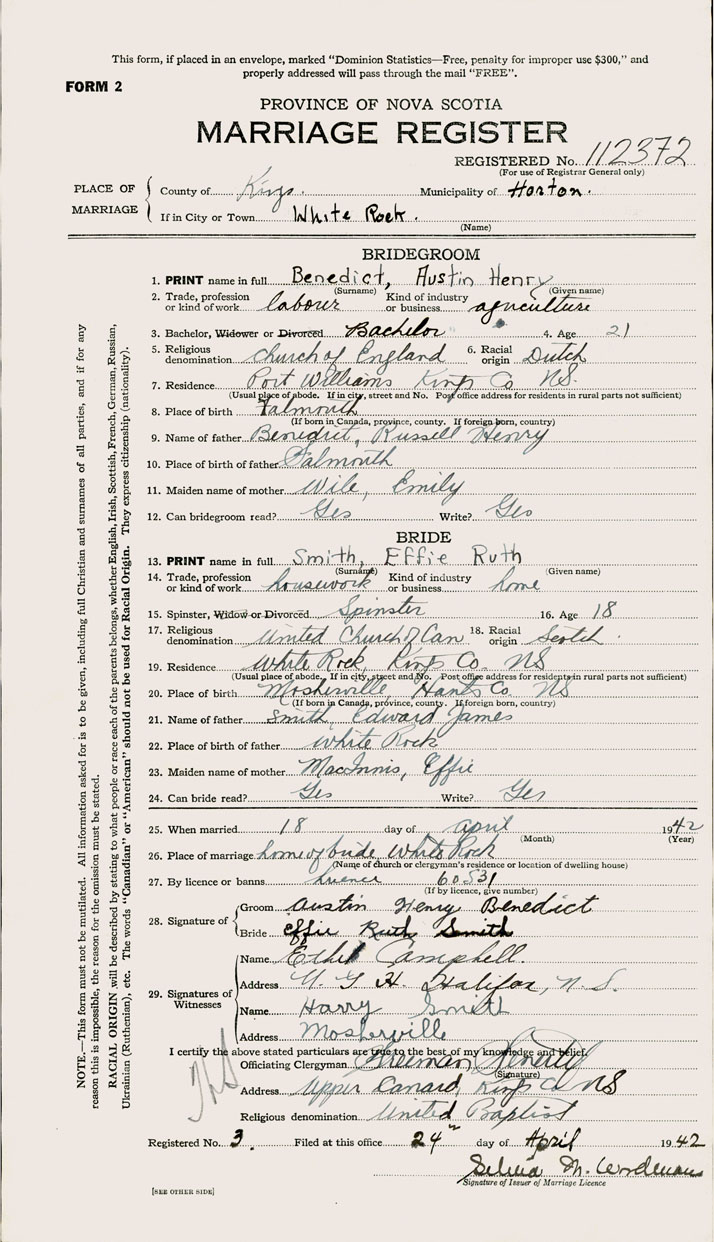 This form, if placed in an envelope, marked "Dominion Statistics—Free, penalty for improper use $300," and
properly addressed will pass through the mail "FREE".
FORM 2
PROVINCE OF NOVA SCOTIA
MARRIAGE REGISTER
REGISTERED No. 112372
(For use of Registrar General only)
PLACE OF MARRIAGE
County of Kings. Municipality of Horton.
If in City or Town White Rock.
(Name)
BRIDEGROOM
1. PRINT name in full Benedict, Austin Henry
(Surname) (Given name)
2. Trade, profession or kind of work labourer Kind of industry or business agriculture
3. Bachelor, Widower or Divorced Bachelor 4. Age 21
5. Religious denomination Church of England 6. Racial origin Dutch
7. Residence Port Williams Kings Co NS.
(Usual place of abode. If in city, street and No. Post office address for residents in rural parts not sufficient)
8. Place of birth Falmouth
(If born in Canada, province, county. If foreign born, country)
9. Name of father Benedict, Russell Henry
10. Place of birth of father Falmouth
11. Maiden name of mother Wile, Emily
12. Can bridegroom read? Yes Write? Yes
BRIDE
13. PRINT name in full Smith, Effie Ruth
(Surname) (Given name)
14. Trade, profession or kind of work housework Kind of industry or business home
15. Spinster, Widow or Divorced Spinster 16. Age 18
17. Religious denomination United Church of Can 18. Racial origin Scotch.
19. Residence White Rock, Kings Co. NS
(Usual place of abode. If in city, street and No. Post office address for residents in rural parts not sufficient)
20. Place of birth Mosherville, Hants Co. NS
(If born in Canada, province, county. If foreign born, country)
21. Name of father Smith, Edward James
22. Place of birth of father White Rock
23. Maiden name of mother MacInnis, Effie
24. Can bride read? Yes Write? Yes
25. When married 18 day of april 1942
(Month) (Year)
26. Place of marriage home of bride White Rock
(Name of church or clergyman's residence or location of dwelling house)
27. By licence or banns licence 60531
(If by licence, give number)
28. Signature of
Groom Austin Henry Benedict
Bride Effie Ruth Smith
29. Signatures of Witnesses
Name Ethel Campbell.
Address V. G. H. Halifax, N. S.
Name Harry Smith
Address Mosherville
I certify the above stated particulars are true to the best of my knowledge and belief.
Officiating Clergyman Freeman
(Signature)
Address Upper Canard, Kings Co NS
Religious denomination United Baptist
Registered No. 3. Filed at this office 24 day of April 1942
Selina M.
Signature of Issuer of Marriage Licence
[SEE OTHER SIDE]
NOTE.—This form must not be mutilated. All information asked for is to be given, including full Christian and surnames of all parties, and if for any
reason this is impossible, the reason for the omission must be stated.
RACIAL ORIGIN will be described by stating to what people or race each of the parents belongs, whether English, Irish, Scottish, French, German, Russian,
Ukrainian (Ruthenian), etc. The words "Canadian" or "American" should not be used for Racial Origin. They express citizenship (nationality).